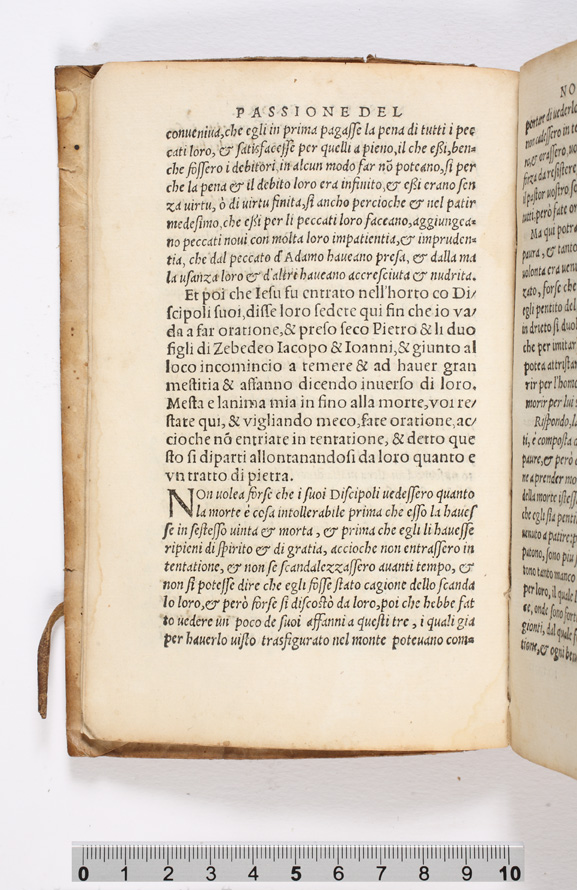 PASSIONE DEL
conveniva, che egli in prima pagaſſe la pena di tutti i pec
cati loro, & ſatisfaceſſe per quelli a pieno, il che eßi, ben-
che foſſero i debitori, in alcun modo far nõ poteano, ſi per
che la pena & il debito loro era infinito, & eßi erano ſen
za uirtu, ò di uirtu finita, ſi ancho percioche & nel patir
medeſimo, che eßi per li peccati loro faceano, aggiungea-
no peccati noui con molta loro impatientia, & impruden-
tia, che dal peccato d'Adamo haueano preſa, & dalla ma
la uſanza loro & d'altri haueano accreſciuta & nudrita.
Et poi che Ieſu fu entrato nell'horto co Di/
ſcipoli ſuoi, diſſe loro ſedete qui fin che io va/
da a far oratione, & preſo ſeco Pietro & li duo
figli di Zebedeo Iacopo & Ioanni, & giunto al
loco incomincio a temere & ad hauer gran
meſtitia & affanno dicendo inuerſo di loro.
Meſta e lanima mia in fino alla morte, voi re/
ſtate qui, & vigliando meco, fate oratione, ac/
cioche nõ entriate in tentatione, & detto que
ſto ſi diparti allontanandoſi da loro quanto e
vn tratto di pietra.
NOn uolea forſe che i ſuoi Diſcipoli uedeſſero quanto
la morte é coſa intollerabile prima che eſſo la haueſ
ſe in ſeſteſſo uinta & morta, & prima che egli li haueſſe
ripieni di ſpirito & di gratia, accioche non entraſſero in
tentatione, & non ſe ſcandalezzaſſero auanti tempo, &
non ſi poteſſe dire che egli foſſe ſtato cagione dello ſcanda
lo loro, & però forſe ſi diſcoſtò da loro, poi che hebbe fat
to uedere un poco de ſuoi affanni a queſti tre, i quali gia
per hauerlo uiſto trasfigurato nel monte poteuano com-
NO
pontar di uederlo
non cadeſſero in te
forza da reſiſtere
il paſtor uoſtro ſe
tutti, però fate or
Ma qui potra
paura, & tanto
uolonta era uenu
zato, forſe che
egli pentito del
in drieto ſi duol
che per imitar
potea attriſtar
rir per l'hom
morir per lui
Riſpondo, la
ti, é compoſta d
paure, & però
ne aprender mo
della morte iſteſſ
che egli ſta penti
uenuto a patire: p
patono, ſono piu
tono tanto manco
per loro, il quale
ae, onde ſono ſort
gionti, dal quale
tione, & ogni ben
0 1 2 3 4 5 6 7 8 9 10